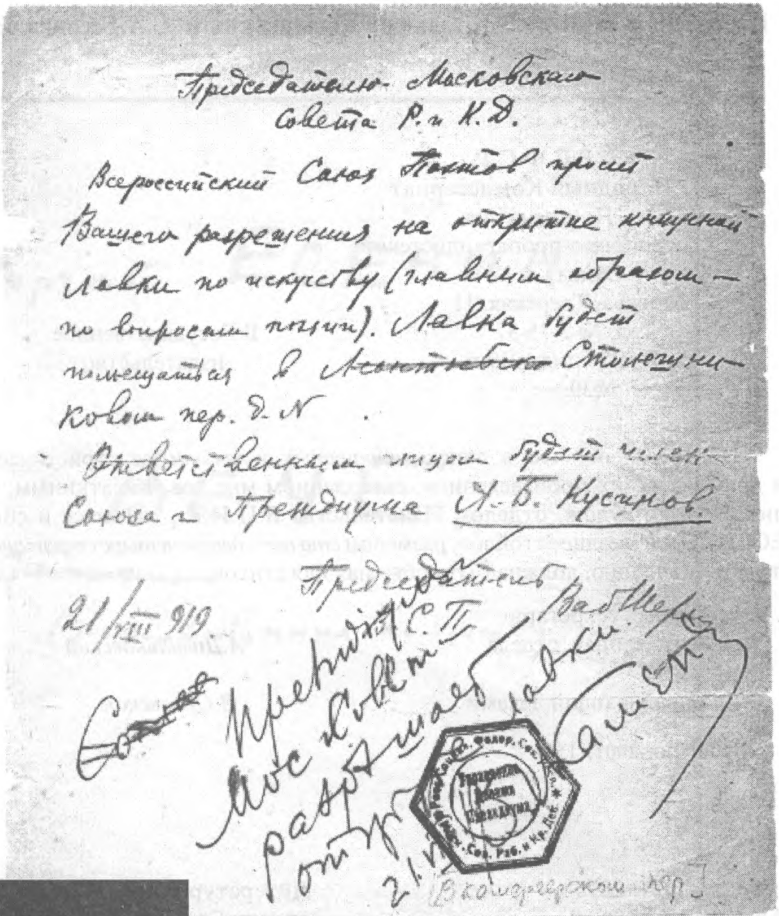 Председателю Московскаго
Совета Р. и К.Д.
Всероссийский Союз Поэтов просит
Вашего разрешения на открытие книжной
лавки по искусству (главным образом —
по вопросам поэзии). Лавка будет
помещаться в Леонтьевско Столешни-
ковом пер. д. N .
Ответственным лицом будет член
Союза и Президиума А. Б. Кусиков.
Председатель
21/VIII 919
В.С.П. Вад Шерш
Президиум
Мос Совета
разрешает
откр лавки
Каменев
21.V
[В камергерском пер.]